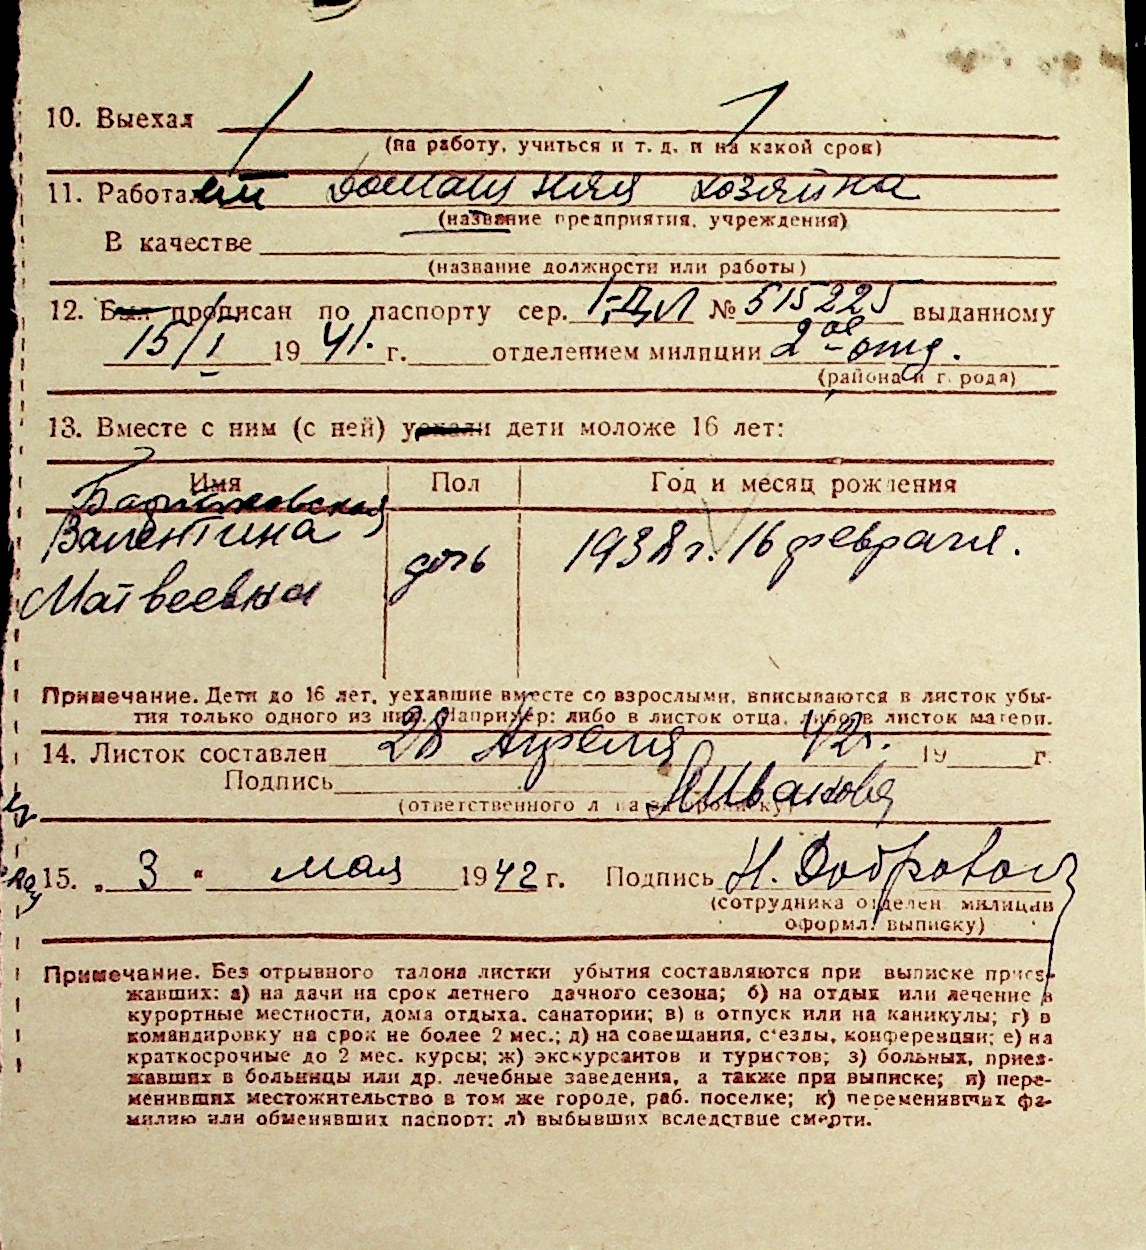 10. Выехал
(на работу, учиться и т. д. и на какой срок)
11. Работает домашняя хозяйка
(название предприятия, учреждения)
В качестве
(название должности или работы)
12. Был прописан по паспорту сер. I-ДЛ № 515225 выданному
15/I 1941. г. отделением милиции 2ое отд.
(района и города)
13. Вместе с ним (с ней) уехали дети моложе 16 лет:
Имя Пол Год и месяц рождения
Валентина
Матвеевна дочь 1938 г. 16 февраля.
Примечание. Дети до 16 лет, уехавшие вместе со взрослыми, вписываются в листок убы-
тия только одного из них. Например: либо в листок отца, либо в листок матери.
14. Листок составлен 28 Апреля 42г. 19 г.
Подпись
(ответственного за прописку)
15. „ 3 " мая 1942 г. Подпись Н. Добровол
(сотрудника отделен. милиции
оформл. выписку)
Примечание. Без отрывного талона листки убытия составляются при выписке приез-
жавших: а) на дачи на срок летнего дачного сезона; б) на отдых или лечение в
курортные местности, дома отдыха, санатории; в) в отпуск или на каникулы; г) в
командировку на срок не более 2 мес.; д) на совещания, с'езды, конференции; е) на
краткосрочные до 2 мес. курсы; ж) экскурсантов и туристов; з) больных, приез-
жавших в больницы или др. лечебные заведения, а также при выписке; и) пере-
менивших местожительство в том же городе, раб. поселке; к) переменивших фа-
милию или обменявших паспорт; л) выбывших вследствие смерти.